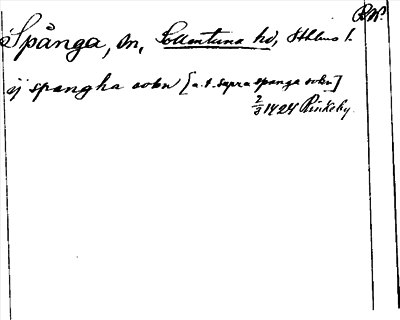 RW.
Spånga, sn, Sollentuna hd, Sthlms l.
ij spangha sokn [a.t. supra spanga sokn]
2/3 1424 Rinkeby.